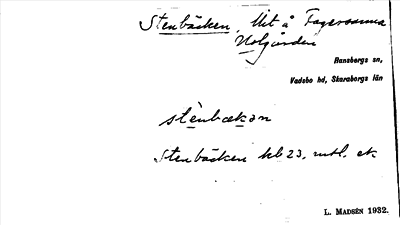 Stenbäcken, Utt å Fagersanna
Holgården
Ransbergs sn,
Vadsbo hd, Skaraborgs län
stènbækən
Stenbäcken kb 23, mtl. ek
L. MADSÉN 1932.